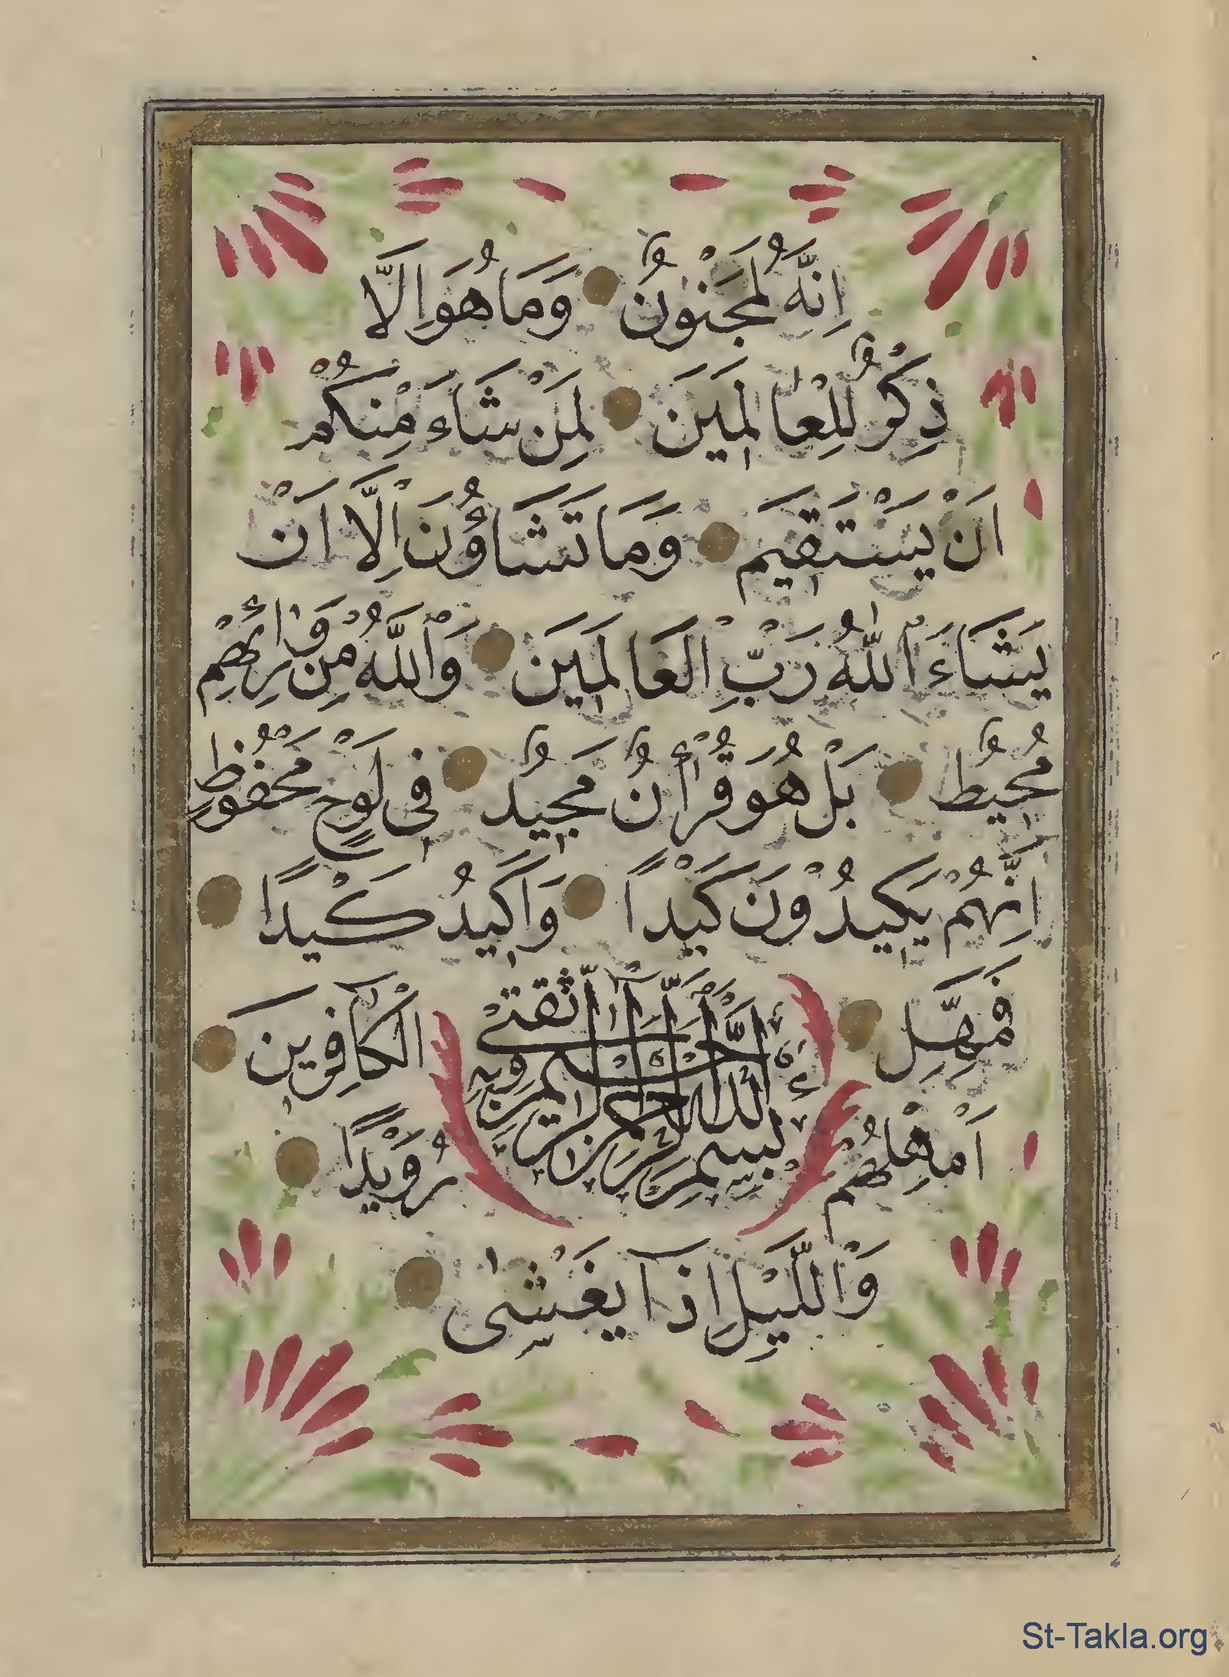 اِنَّهُ لَمَجْنُونٌ وَمَا هُوَ اِلَّا
ذِكْرٌ لِلْعَالَمِينَ لِمَنْ شَاءَ مِنْكُمْ
اَنْ يَسْتَقِيمَ وَمَا تَشَاؤُنَ اِلَّا اَنْ
يَشَاءَ اللهُ رَبُّ الْعَالَمِينَ وَاللهُ مِنْ وَرَائِهِمْ
مُحِيطٌ بَلْ هُوَ قُرْاٰنٌ مَجِيدٌ فِى لَوْحٍ مَحْفُوظٍ
اِنَّهُمْ يَكِيدُونَ كَيْدًا وَاَكِيدُ كَيْدًا
فَمَهِّلِ الْكَافِرِينَ
اَمْهِلْهُمْ رُوَيْدًا
بسم الله الرحمن الرحيم وبه ثقتى
وَاللَّيْلِ اِذَا يَغْشٰى
St-Takla.org